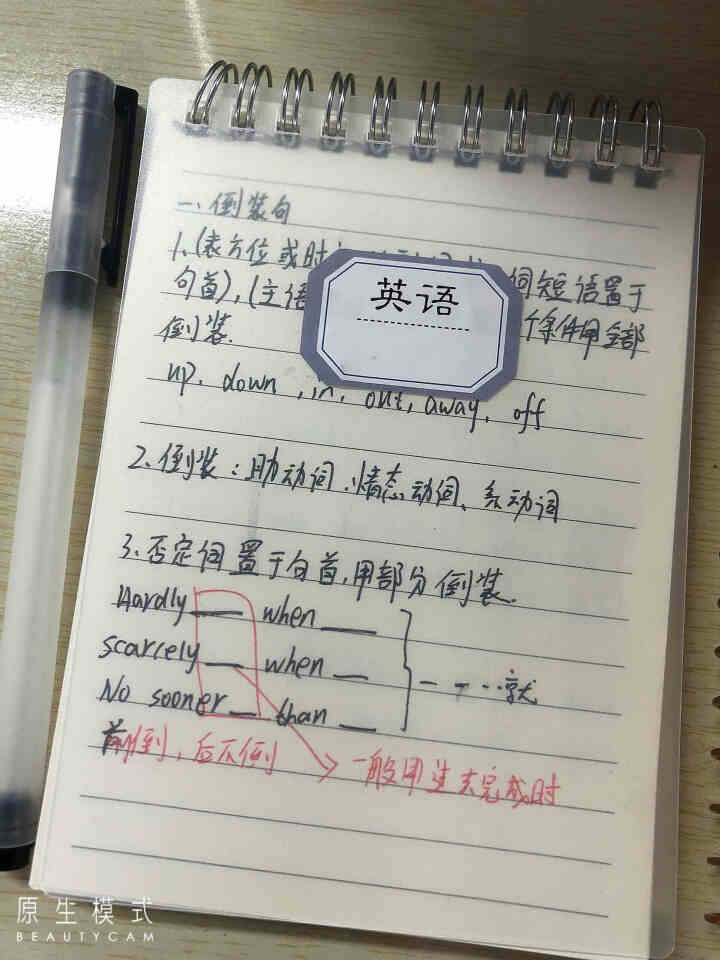 一、倒装句
1、(表方位或时 词短语置于
句首),(主语 个条件用全部
倒装.
英语
up, down, in, out, away, off
2、倒装：助动词、情态动词、系动词
3、否定词置于句首,用部分倒装.
Hardly ___ when ___
scarcely ___ when ___
No sooner ___ than ___
一 ... 就
前倒，后不倒
一般用过去完成时
原生模式
BEAUTYCAM